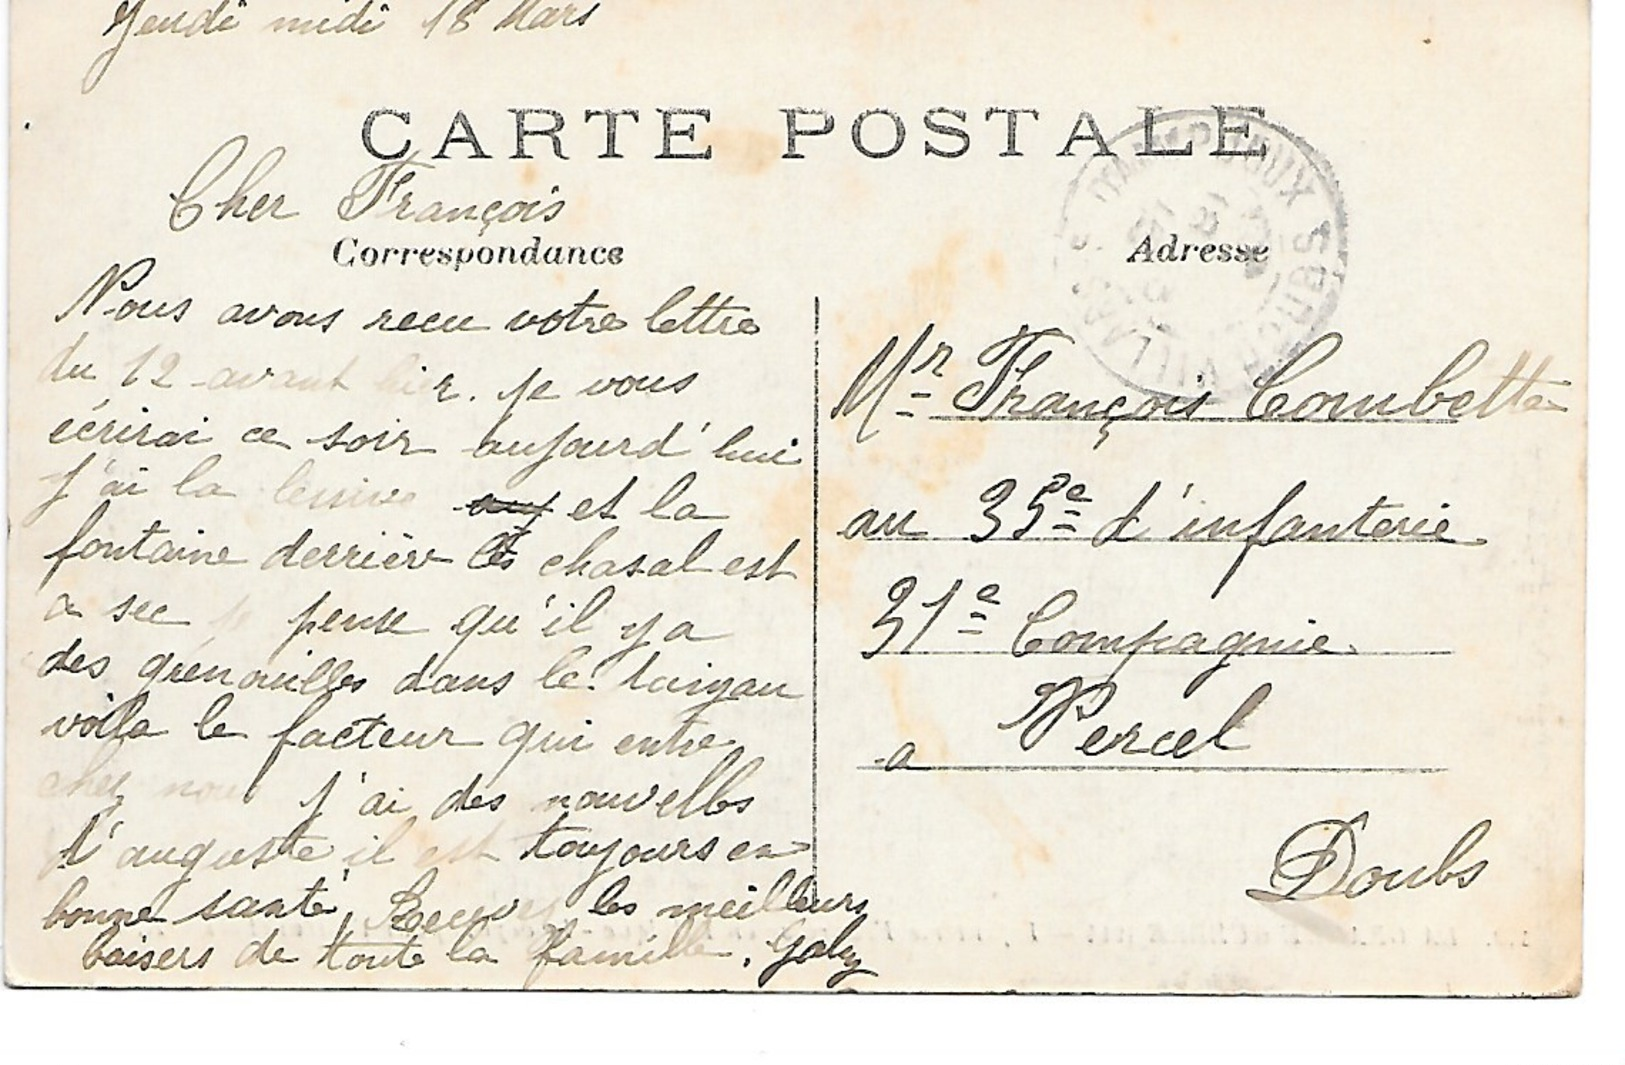 Jeudi midi 18 Mars
CARTE POSTALE
Cher François
Correspondance
Nous avons recu votre lettre
du 12 avant hier. je vous
écrirai ce soir aujourd'hui
j'ai la lessive et la
fontaine derrière chasal est
a sec je pense qu'il y a
des grenouilles dans le tuiyau
voila le facteur qui entre
chez nous j'ai des nouvelles
d'auguste il est toujours en
bonne santé, Recevez les meilleurs
baisers de toute la famille. Gaby
Adresse
Mr François Combette
au 35e d'infanterie
31e Compagnie.
a Percel
Doubs